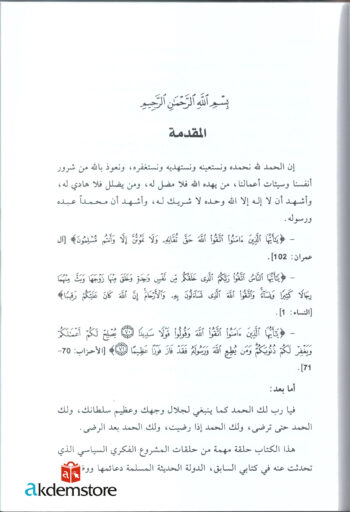 بِسْمِ اللَّهِ الرَّحْمَٰنِ الرَّحِيمِ
المقدمة
إن الحمد لله نحمده ونستعينه ونستهديه ونستغفره، ونعوذ بالله من شرور
أنفسنا وسيئات أعمالنا، من يهده الله فلا مضل له، ومن يضلل فلا هادي له،
وأشهد أن لا إله إلا الله وحده لا شريك له، وأشهد أن محمداً عبده
ورسوله.
- ﴿يَٰٓأَيُّهَا ٱلَّذِينَ ءَامَنُوا۟ ٱتَّقُوا۟ ٱللَّهَ حَقَّ تُقَاتِهِۦ وَلَا تَمُوتُنَّ إِلَّا وَأَنتُم مُّسْلِمُونَ﴾ [آل
عمران: 102].
- ﴿يَٰٓأَيُّهَا ٱلنَّاسُ ٱتَّقُوا۟ رَبَّكُمُ ٱلَّذِى خَلَقَكُم مِّن نَّفْسٍ وَٰحِدَةٍ وَخَلَقَ مِنْهَا زَوْجَهَا وَبَثَّ مِنْهُمَا
رِجَالًا كَثِيرًا وَنِسَآءً ۚ وَٱتَّقُوا۟ ٱللَّهَ ٱلَّذِى تَسَآءَلُونَ بِهِۦ وَٱلْأَرْحَامَ ۚ إِنَّ ٱللَّهَ كَانَ عَلَيْكُمْ رَقِيبًا﴾
[النساء: 1].
- ﴿يَٰٓأَيُّهَا ٱلَّذِينَ ءَامَنُوا۟ ٱتَّقُوا۟ ٱللَّهَ وَقُولُوا۟ قَوْلًا سَدِيدًا ۝٧٠ يُصْلِحْ لَكُمْ أَعْمَٰلَكُمْ
وَيَغْفِرْ لَكُمْ ذُنُوبَكُمْ ۗ وَمَن يُطِعِ ٱللَّهَ وَرَسُولَهُۥ فَقَدْ فَازَ فَوْزًا عَظِيمًا ۝٧١﴾ [الأحزاب: 70-
71].
أما بعد:
فيا رب لك الحمد كما ينبغي لجلال وجهك وعظيم سلطانك، ولك
الحمد حتى ترضى، ولك الحمد إذا رضيت، ولك الحمد بعد الرضى.
هذا الكتاب حلقة مهمة من حلقات المشروع الفكري السياسي الذي
تحدثت عنه في كتابي السابق، الدولة الحديثة المسلمة دعائمها
akdemstore